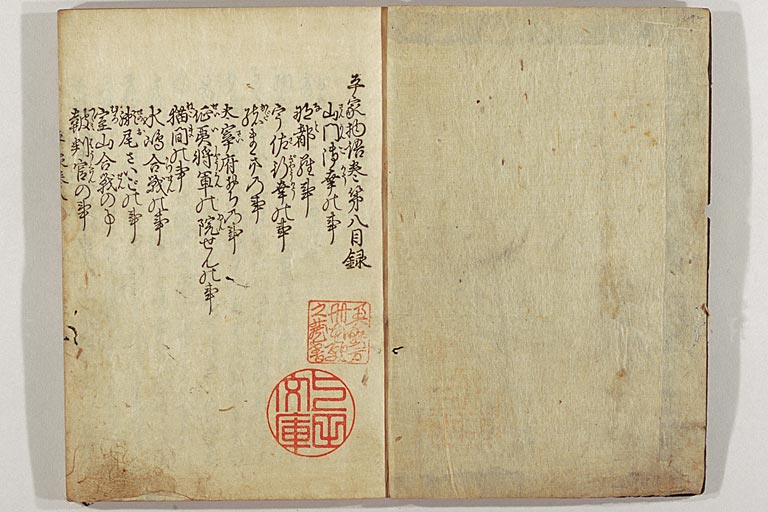 平家物語巻第八目録
山門御幸の事
那都羅事
宇佐行幸の事
緒まきの事
太宰府おちの事
征夷将軍の院せんの事
猫間の事
水嶋合戦の事
瀬尾さいごの事
室山合戦の事
皷判官の事